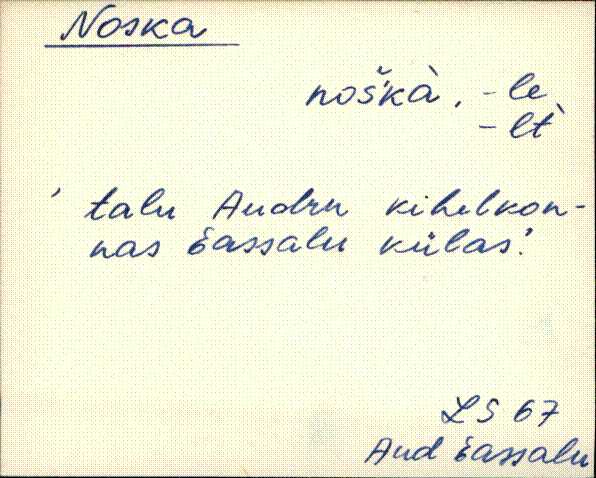 Noska
noš'kà, -le
-lt̀
' talu Audru kihelkon-
nas Eassalu külas'.
LS 67
Aud Eassalu